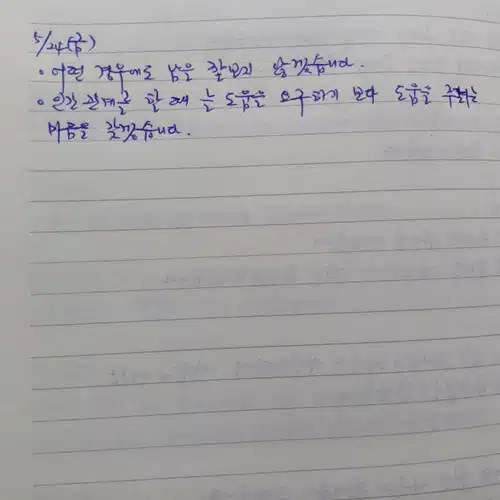 5/24(금)
· 어떤 경우에도 남을 깔보지 않겠습니다.
· 인간 관계를 할 때는 도움을 요구하기 보다 도움을 주려는
마음을 갖겠습니다.